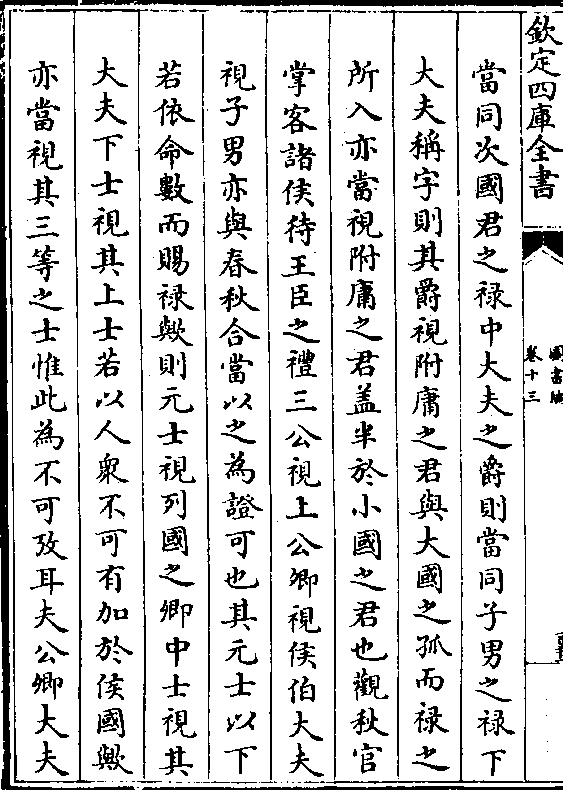 欽定四庫全書
卷十三
當同次國君之祿中大夫之爵則當同子男之祿下
大夫稱字則其爵視附庸之君與大國之孤而祿之
所入亦當視附庸之君盖半於小國之君也觀秋官
掌客諸侯待王臣之禮三公視上公卿視侯伯大夫
視子男亦與春秋合當以之為證可也其元士以下
若依命數而賜祿歟則元士視列國之卿中士視其
大夫下士視其上士若以人衆不可有加於侯國歟
亦當視其三等之士惟此為不可攷耳夫公卿大夫